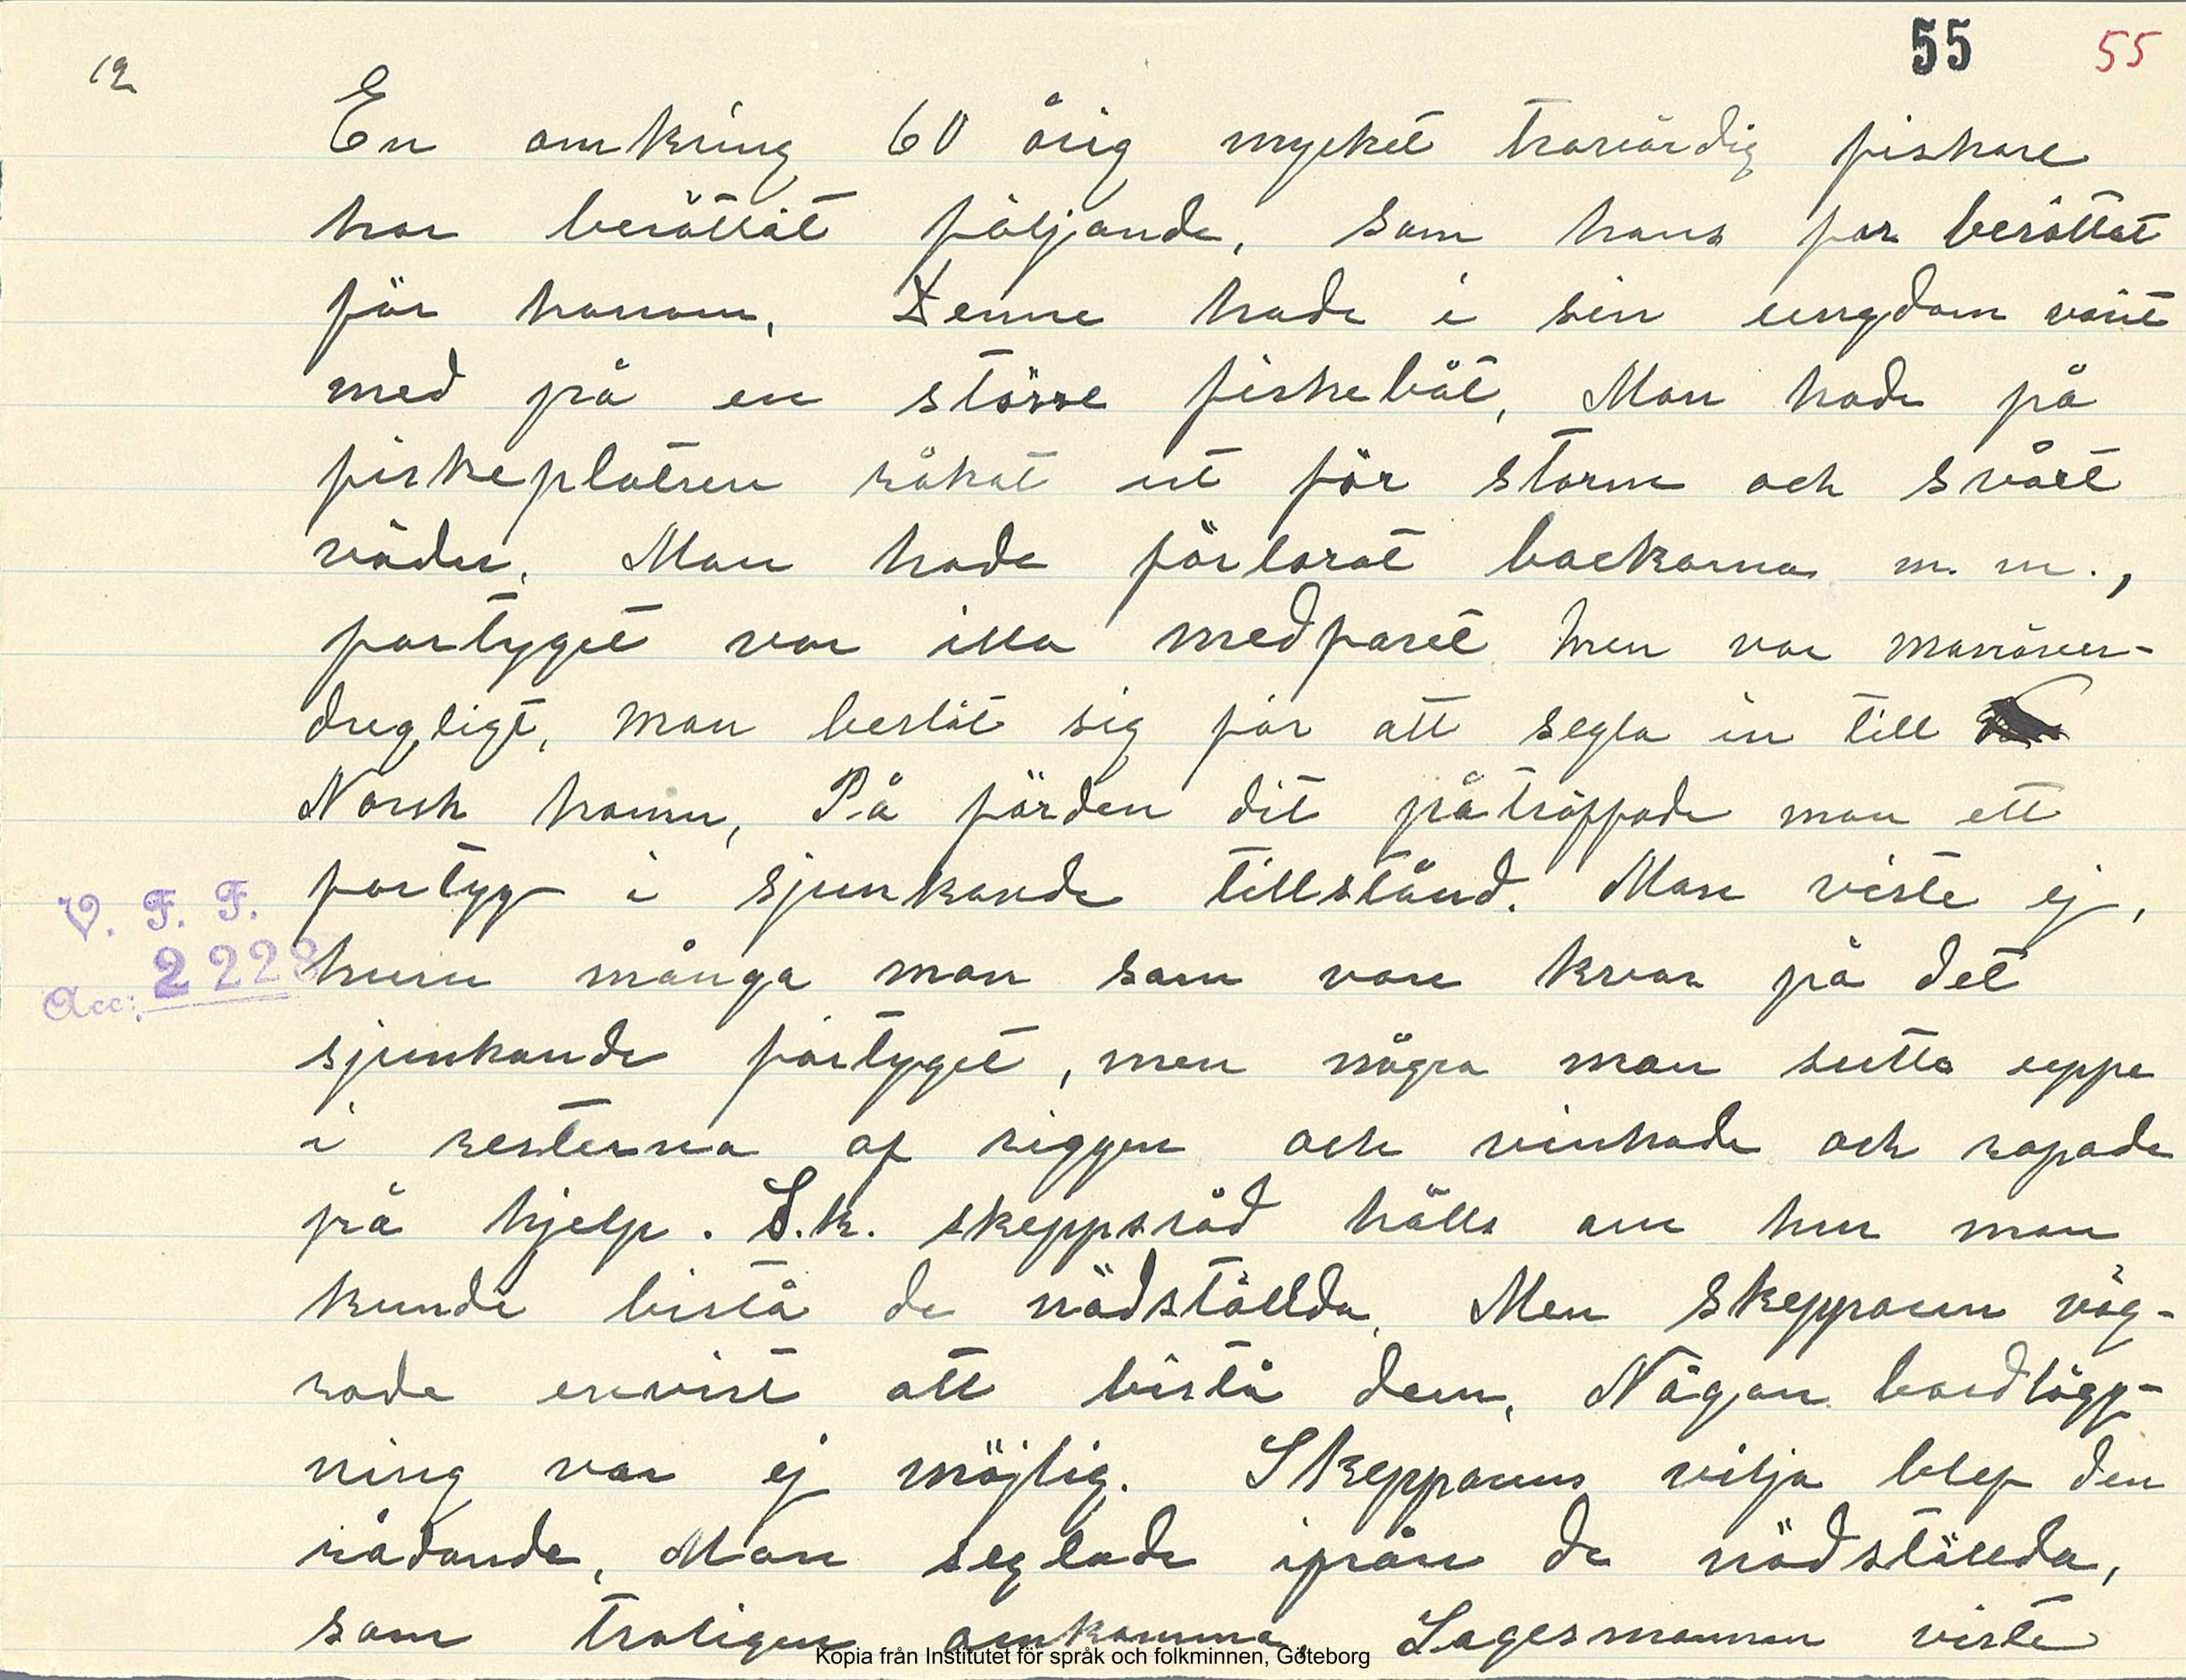 55 55
12
En omkring 60 årig mycket trovärdig fiskare
har berättat följande, som hans far berättat
för honom. Denne hade i sin ungdom varit
med på en större fiskebåt, Man hade på
fiskeplatsen råkat ut för storm och svårt
väder. Man hade förlorat backarna m. m.,
fartyget var illa medfaret men var manöver-
dugligt, man beslöt sig för att segla in till
Norsk hamn, På färden dit påträffade man ett
fartyg i sjunkande tillstånd. Man viste ej,
V. F. F.
Acc: 2228
huru många man som vore kvar på det
sjunkande fartyget, men några man sutto uppe
i resterna af riggen och vinkade och ropade
på hjelp. S.k. skeppsråd hålls om hur man
kunde bistå de nödställda. Men skepparen väg-
rade envist att bistå dem, Någon bordlägg-
ning var ej möjlig. Skepparens vilja blef den
rådande, Man seglade ifrån de nödställda,
som troligen omkommo. Sagesmannen viste
Kopia från Institutet för språk och folkminnen, Göteborg